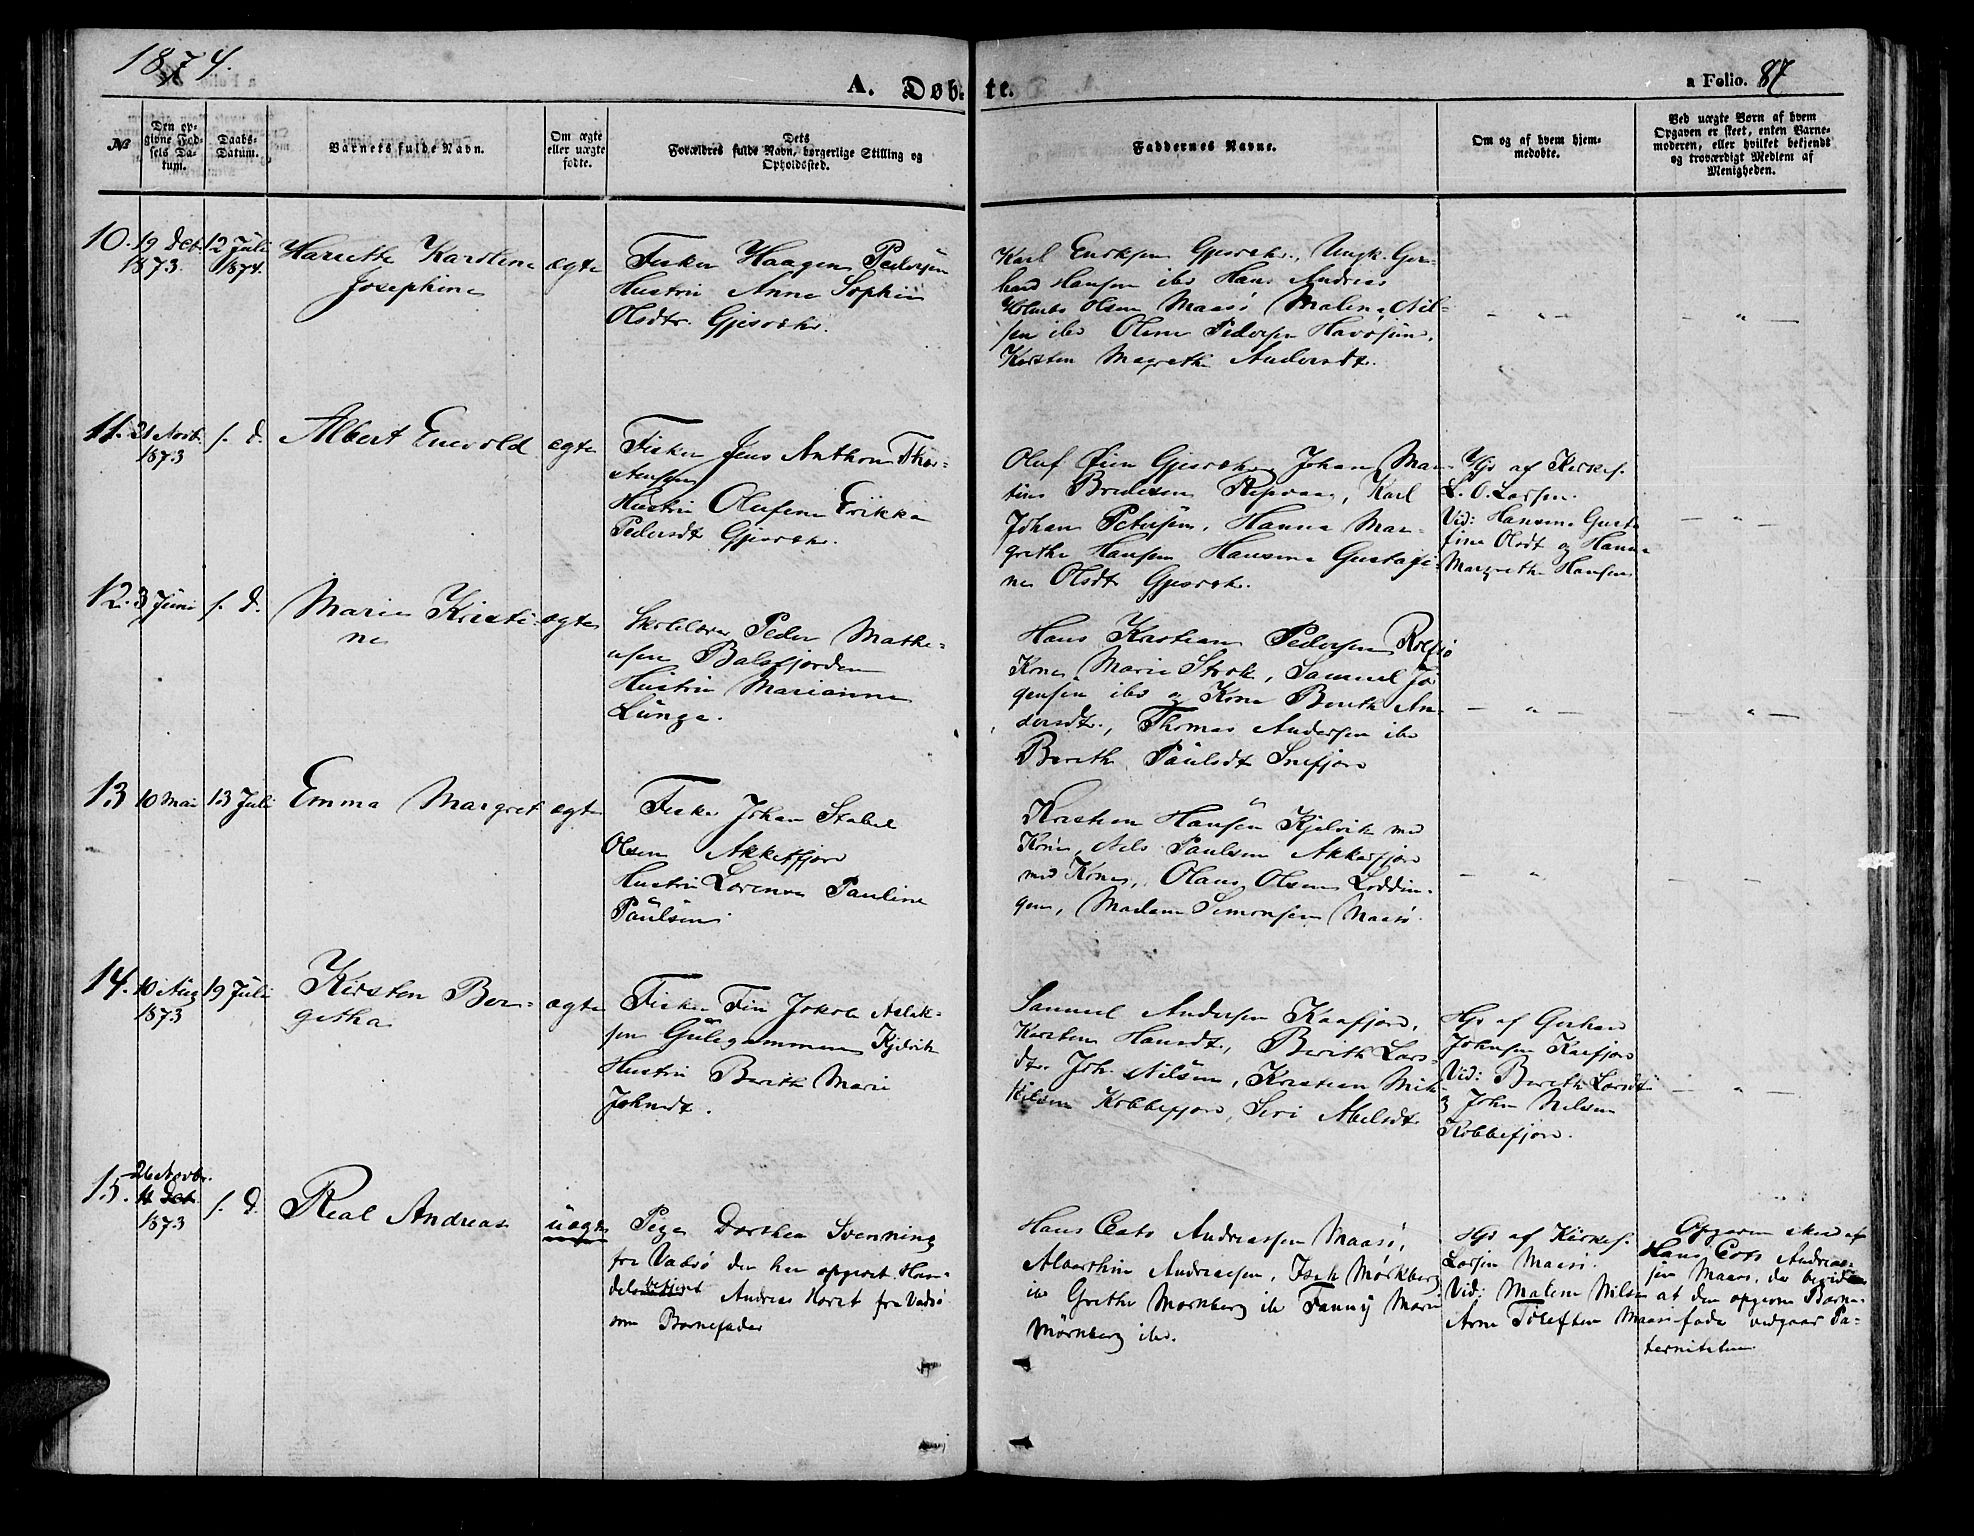 1874.
A. Døbte.
a Folio. 87
No
Den opgivne Fødsels Datum.
Daabs-Datum.
Barnets fulde Navn.
Om ægte eller uægte fødte.
Dets Forældres fulde Navn, borgerlige Stilling og Opholdssted.
Faddernes Navne.
Om og af hvem hjemmedøbte.
Ved uægte Børn af hvem Opgaven er skeet, enten Barnemoderen, eller hvilket bekjendt og troværdigt Medlem af Menigheden.
10. 19 1873. 12 Juli 1874.
Hariette Karoline
Josephine
ægte
Fisker Haagen Pedersen
Hustru Anne Sophie
Olsdtr. Gjesvær.
Karl Eriksen Gjesvær., Ungk. Ger-
hard Hansen ibd Hans Andreas
Olsen Maasø, Malene Nil-
sen ibd Olene Pedersen Havøsund,
Kirsten Magrethe Andersdtr.
- " -
- " -
11. 21 Novb. 1873 s. d.
Albert Enevold
ægte
Fisker Jens Anthon Thor-
stensen
Hustru Olufine Erikka
Pedersdt Gjesvær.
Oluf Gjesvær, Johan Mar-
tin Bredesen Repvaag, Karl
Johan Petersen, Hanna Mar-
grethe Hansen Hansine Gustafi-
ne Olsdt Gjesvær.
Hjd af Kirkes.
L. O. Larsen.
Vid: Hansine Gusta
fine Olsdt og Hanna
Margrethe Hansen
- " -
12. 3 Juni s. d.
Marie Kristi-
ne
ægte
Skolelærer Peder Mathi-
esen Balsfjorden
Hustru Marianne
Lunge.
Hans Kristian Pedersen Rolfsø
Kone Marie Strøk, Samuel Jør
gensen ibd og Kone Berith An-
dersdtr., Thomas Andersen ibd
Berith Paulsdt Snefjord
- " -
- " -
13 10 Mai 13 Juli
Emma Margret
ægte
Fisker Johan Stabel
Olsen Akkerfjord
Hustru Lorense Pauline
Paulsen.
Kristian Hansen Kjelvik med
Kone, Nils Paulsen Akkerfjord
med Kone, Olaus Olsen Loddin-
gen, Madam Simonsen Maasø.
- " -
- -
14. 10 Aug 1873 19 Juli
Kirsten Ber-
getha
ægte
Fisker Fin Jakob Aslak-
sen Gulegammen Kjelvik
Hustru Berith Marie
Johnsdt.
Samuel Andersen Kaafjord,
Karsten Hansdt, Berith Lars-
dtr. Joh. Nilsen, Kristian Mik
kelsen Kobbefjord, Siri Abelsdt
Hjd af Gerhard
Johnsen Kaafjord
Vid: Berith Larsdt
og John Nilsen
Kobbefjord.
- " -
15. 26 Novbr. 1873 s. d.
Real Andreas
uægte
Pige Dorthea Svenning
fra Vadsø der har opgivet Han-
delsbetjent Andreas Horst fra Vadsø
som Barnefader
Hans Coats Andreassen Maasø,
Albertine Andreassen, Mørkberg
ib Grethe Mørnberg ib Fanny Marie
Mørnberg ibd.
Hjd af Kirkes.
Larsen Maasø.
Vid: Malene Nilsen
Arne Tollefsen Maasø
Opgaven skeed af
Hans Coats Andreas-
sen Maasø, der bevidner
at den opgivne Barne-
fader vedgaar Pa-
terniteten